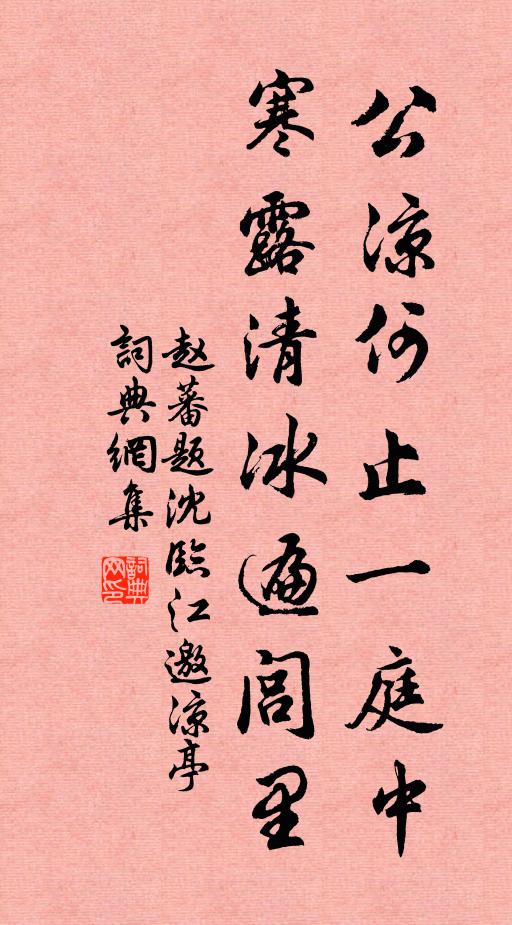 公凉何止一庭中
寒露清冰遍閭里
赵蕃题沈临江邀凉亭
詞典網集
詞典网印